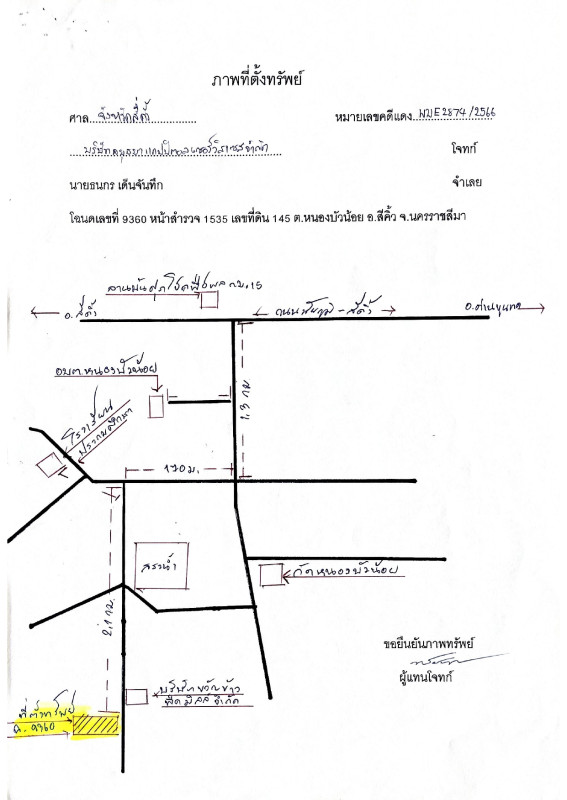 ภาพที่ตั้งทรัพย์
ศาล จังหวัดสีคิ้ว หมายเลขคดีแดง ผบE2874/2566
โจทก์
นายธนกร เด็นจันทึก จำเลย
โฉนดเลขที่ 9360 หน้าสำรวจ 1535 เลขที่ดิน 145 ต.หนองบัวน้อย อ.สีคิ้ว จ.นครราชสีมา
ลานมัน กม.15
อ.สีคิ้ว ถนนชัยภูมิ-สีคิ้ว อ.ด่านขุนทด
อบต.หนองบัวน้อย
1.3 กม
โรงเรียน
170 ม.
สระน้ำ
วัดหนองบัวน้อย
2.1 กม.
ขอยืนยันภาพทรัพย์
ผู้แทนโจทก์
บริษัท ขวัญข้าว
จำกัด
ที่ตั้งทรัพย์
ฉ. 9360